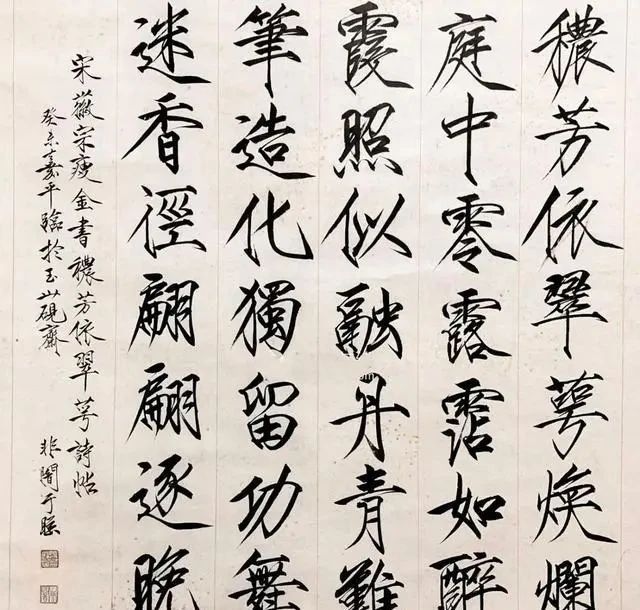 穠芳依翠萼煥爛
庭中零露霑如醉
霞照似融丹青難
筆造化獨留功舞
迷香徑翩翩逐晚
宋徽宗瘦金書穠芳依翠萼詩帖
癸未嘉平臨於玉山硯齋 非闇于照